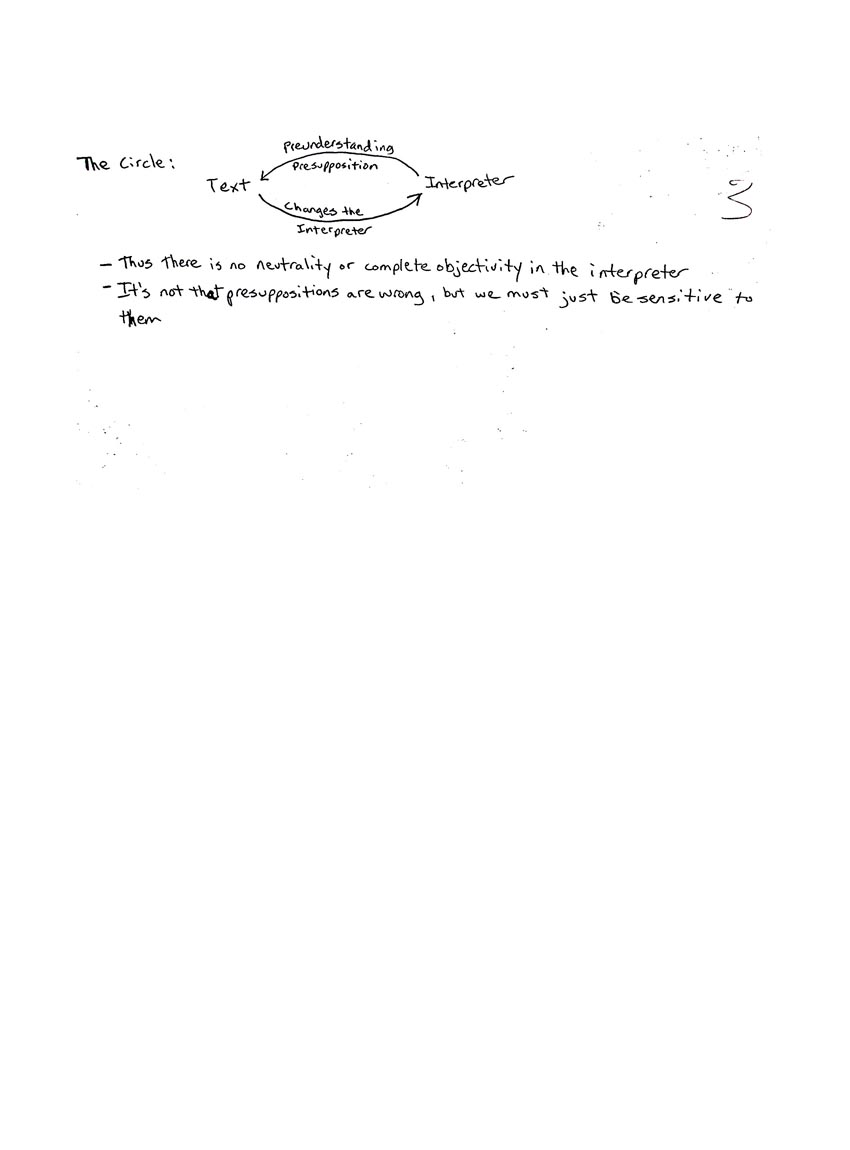 The Circle:
Preunderstanding
Presupposition
Text
Interpreter
Changes the
Interpreter
3
- Thus there is no neutrality or complete objectivity in the interpreter
- It's not that presuppositions are wrong, but we must just be sensitive to
them